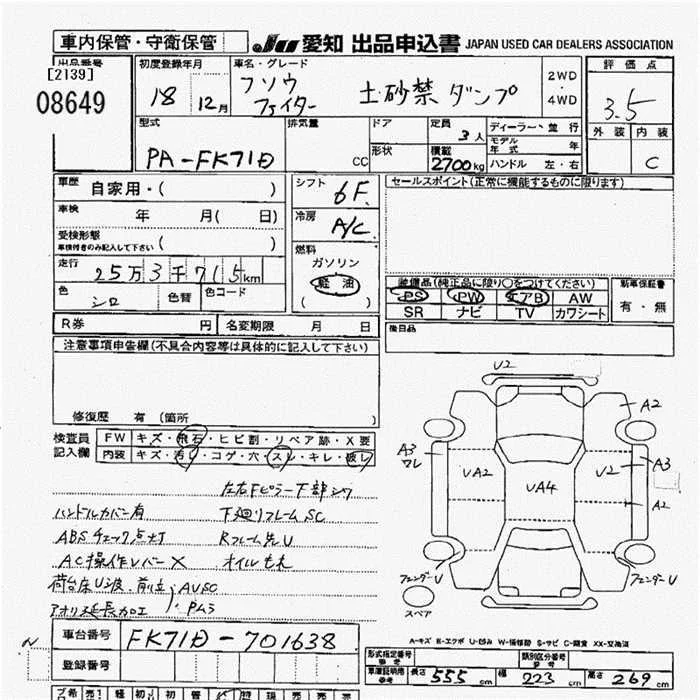 車内保管・守衛保管
JU 愛知 出品申込書 JAPAN USED CAR DEALERS ASSOCIATION
出品番号
[2139]
08649
初度登録年月
18 12月
車名・グレード
フソウ
ファイター
土砂禁 ダンプ
2WD
・
4WD
評価点
3.5
外装 内装
C
型式
PA-FK71D
排気量
CC
ドア
形状
定員
3人
積載
2700kg
ディーラー・並行
モデル年式 年
ハンドル 左・右
車歴 自家用・( )
車検 年 月( 日)
受検形態
車検付きのみ記入して下さい ( )
走行 25万3千715km
色 シロ 色替 色コード
シフト 6F
冷房 A/C
燃料
ガソリン
軽油
セールスポイント(正常に機能するものに限ります)
装備品(純正品に限り○をつけてください)
PS PW エアB AW
SR ナビ TV カワシート
新車保証書
有・無
後日品
R券 円 名変期限 月 日
注意事項申告欄(不具合内容等は具体的に記入して下さい)
修復歴 有(箇所 )
検査員記入欄
FW キズ・飛石・ヒビ割・リペア跡・X要
内装 キズ・汚レ・コゲ・穴・スレ・キレ・破レ
左右Fピラー下部シワ
ハンドルカバー有 下廻リフレームSC
ABSチェック点灯 Rフレーム先U
AC操作レバーX オイルもれ
荷台床U波・前立 AUSC
アオリ延長加工 
U2
A2
A3
ワレ
UA2
UA4
U2
A3
A2
フェンダーU
フェンダーU
スペア
A-キズ E-エクボ U-凹み W-補修跡 S-サビ C-腐食 XX-交換済
車台番号 FK71D-701638
登録番号
型式指定番号
類別区分番号
長さ 555cm 幅 223cm 高さ 269cm